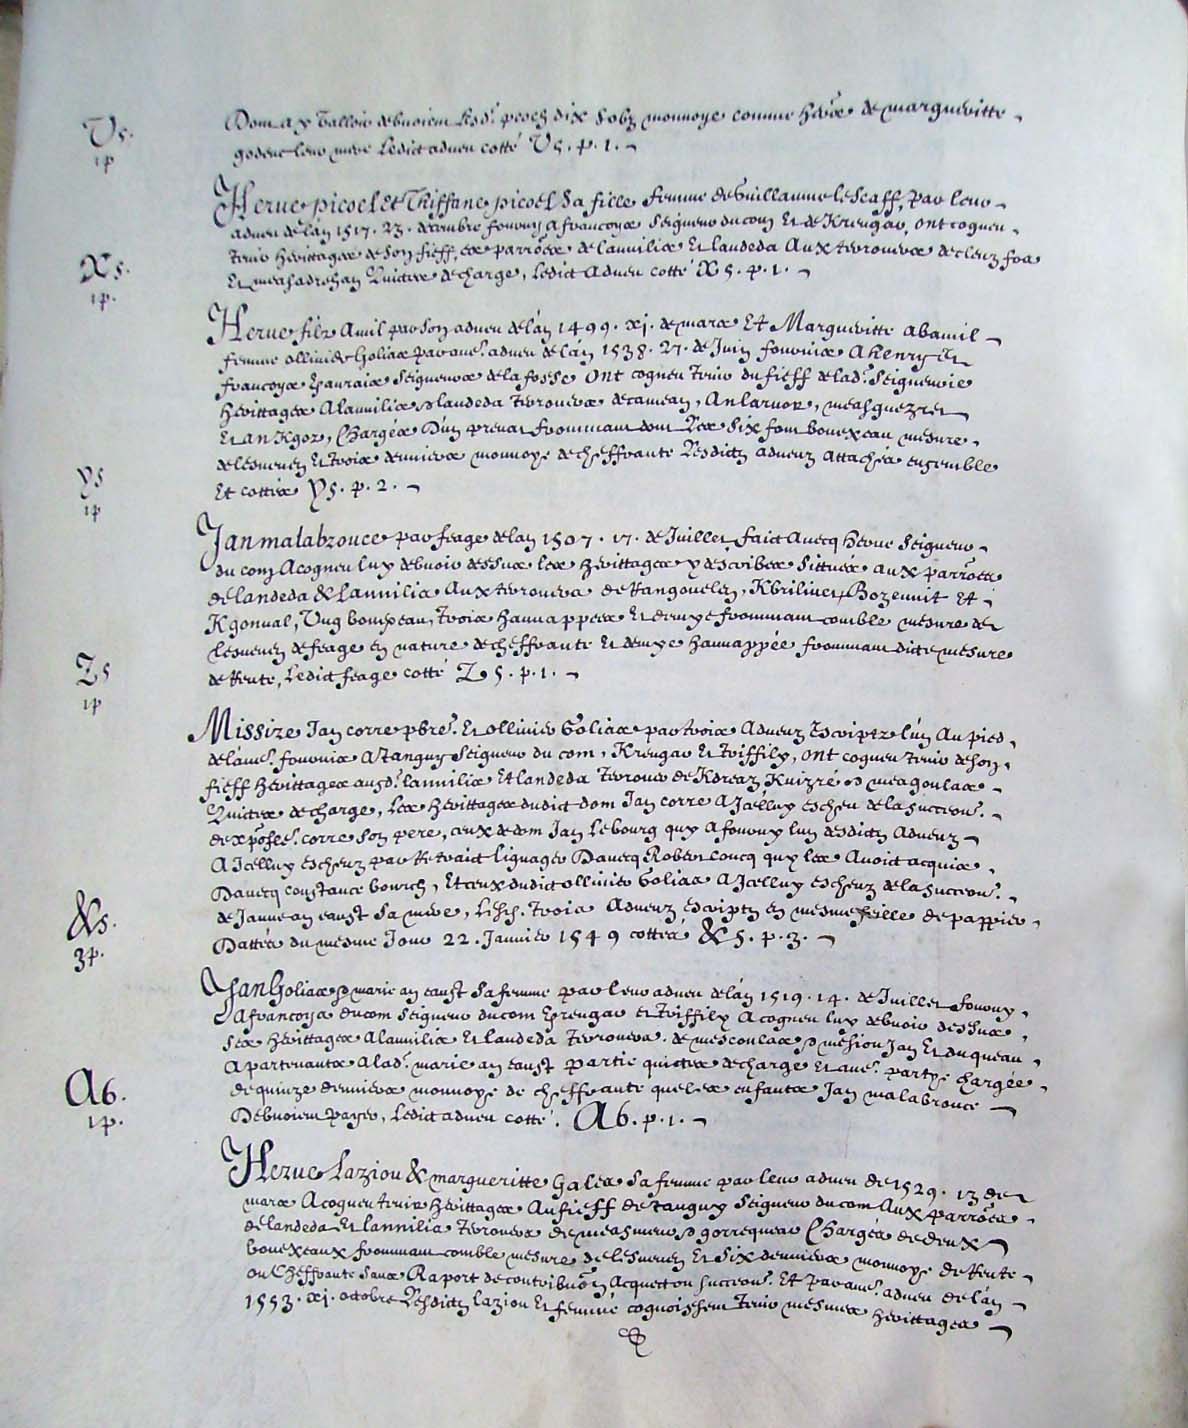 V5.
1p
godenc leur mere Ledict adueu cotté V5. p. 1.
Herue picoel Et Thiffane picoel Sa fille femme de Guillaume le Scaff, Par leur
adueu de lan 1517. 23. decembre fourny a francoys Seigneur du com Et de Kreugar, ont cogneu
tenir Heritages de Son fieff, es parroes de lannilis Et landeda Aux terrouers de cleuz foa
Quictes de charge, Ledict Adueu cotté X5. p. 1.
X5.
1p.
Herue filz Amil par son adueu de lan 1499. xj. de mars Et Margueritte abamil
femme ollivier Golias par aue. adueu de lan 1538. 27. de Juin fournis A henry Et
francoys Seigneurs de la fosse Ont cogneu tenir du fieff de lad. Seigneurie
Heritages A lannilis & landeda terrouers An laruor, measguezrec
Et an Kgoz, Chargés Dun froumant dom Les Six font bouexeau mesure
de lesneuen Et trois deniers monnoye de cheffrante Lesdictz adueuz attachés ensemble
Et cottés Y5. p. 2.
Y5
1p
Jan malabrouce par feage de lan 1507. 17. de Juillet, faict Auecq Herue Seigneur
du com A cogneu luy debuoir dessus les Heritages y describes Sittués aux parroes
de landeda & lannilis Aux terrouers de tangouelen, Kbriliuet, Bozeunit Et
Kgonual, Ung bouexeau, trois hannappees Et demye froumant comble mesure de
Lesneuen de feage en nature de cheffrante Et demye hannappée froumant dicte mesure
de Rente, Ledict feage cotté Z5. p. 1.
Z5
1p
Missire Jan corre pbre. Et ollivier Golias par trois Adueuz Escriptz lun Au pied
de laue. fournis A Tanguy Seigneur du com, Kreugar Et triffily, ont cogneu tenir de son
fieff Heritages ausd. lannilis Et landeda terrouer de Kdreaz Kuizré & meagoulas
Quictes de charge, Les Heritages dudict dom Jan corre A Jcelluy escheu de la succeon.
de xpofle. corre Son pere, ceux de dom Jan Le bourg quy A fourny lun desdictz Adueuz
A Jcelluy escheuz par Retraict lignager Dauecq Robert coucq quy les Auoict acquis
Dauecq constance bourch, Et ceux dudict ollivier Golias A Jcelluy escheuz de la succeon.
de Janne an eaust Sa mere, Lesd. trois Adueuz escriptz en mesme feille de pappier
Dattés du mesme Jour 22. Januier 1549 cottés &5. p. 3.
&5.
3p.
Jan Golias & marie an eaust Sa femme par leur adueu de lan 1519. 14. de Juillet fourny
A francoys du com Seigneur du com Kreugar et triffily A cogneu luy debuoir dessus
Ses Heritages A lannilis Et landeda terrouers de mescoulas & Jan Et du queau
Apartenants A lad. marie an eaust partie quictes de charge Et aue. partye chargée
de quinze deniers monnoye de cheffrante que les enfants Jan malabrouce
Debuoient payer, Ledict adueu cotté. A6. p. 1.
A6.
1p.
Herue Laziou & margueritte Gales Sa femme par leur adueu de 1529. 13 de
mars A cogneu tenir Heritages Au fieff de tanguy Seigneur du com Aux parroes
de landeda Et lannilis terrouers de measmeur & gorrequear Chargés de deux
bouexeaux froumant comble mesure de lesneuen Et Six deniers monnoye de Rente
ou Cheffrante Sans Raport de contribuon Acquect ou succeon. Et par aue. adueu de lan
1553. xj. octobre Lesdictz laziou Et femme cognoissent tenir mesmes Heritages